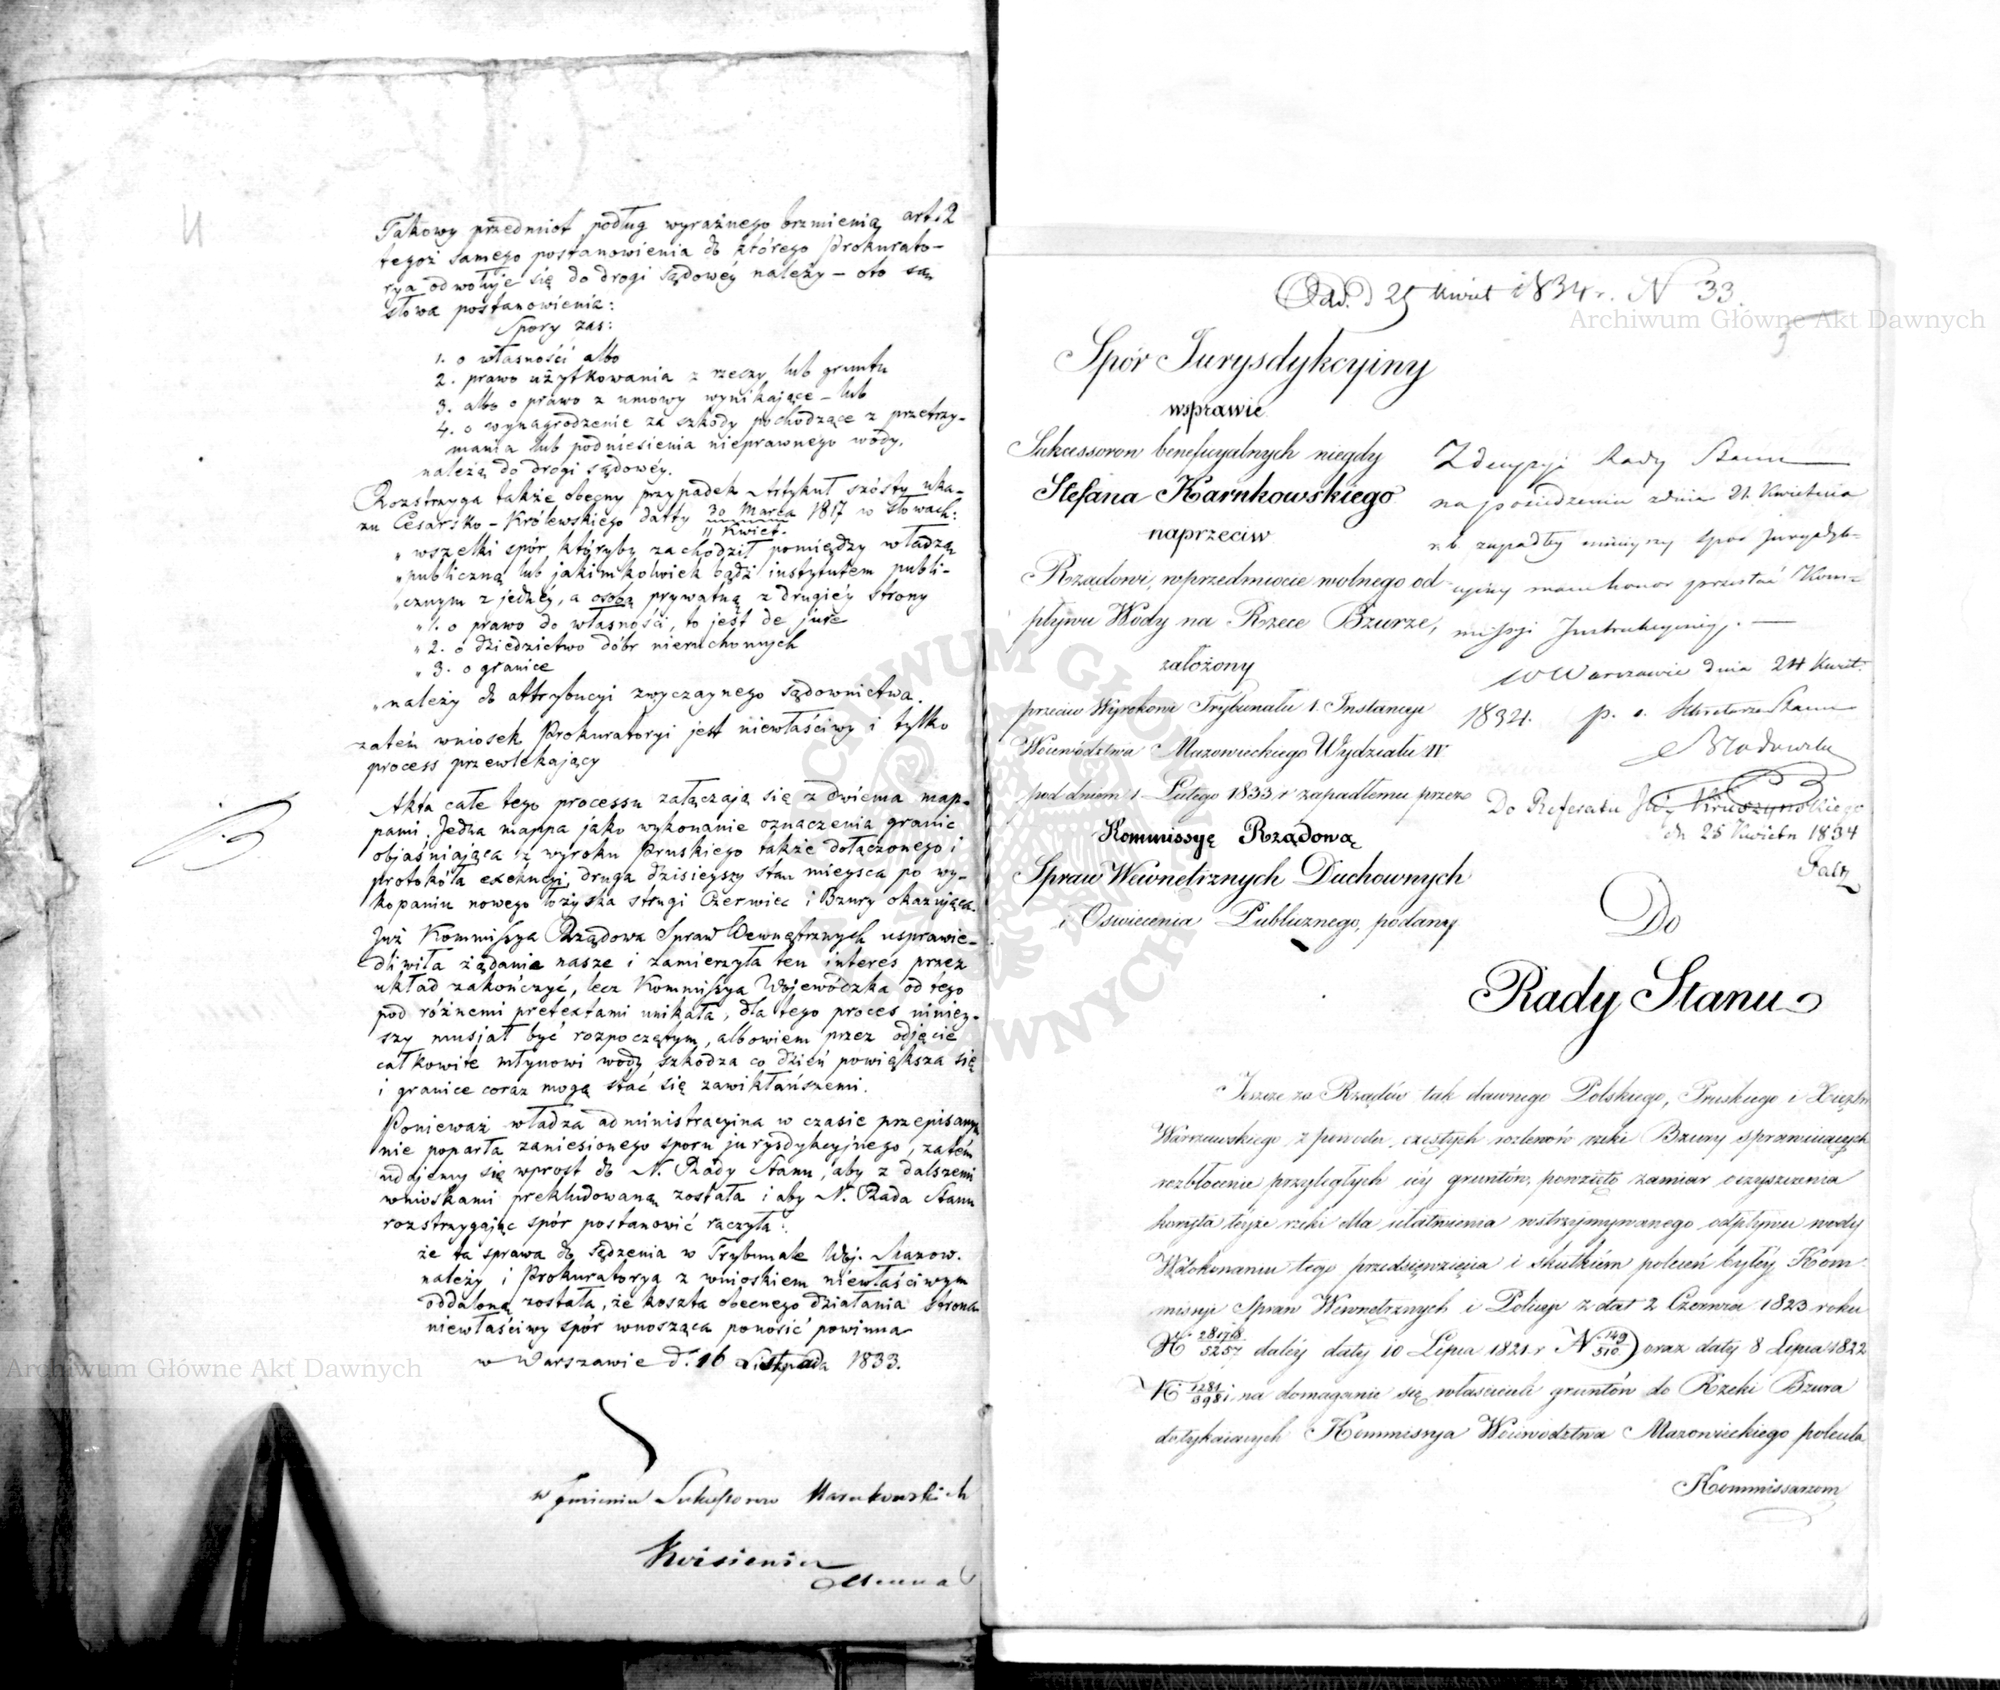 Takowy przedmiot podług wyraźnego brzmienia art. 2
tegoż samego postanowienia do którego Prokurato-
rya odwołuje się do drogi sądowéy należy – oto są
słowa postanowienia:
Spory zaś:
1. o własności albo
2. prawo użytkowania z rzeczy lub gruntu
3. albo o prawo z umowy wynikające – lub
4. o wynagrodzenie za szkody pochodzące z przetrzy-
mania lub podniesienia nieprawnego wody,
należą do drogi sądowéy.
Rozstrzyga także obecny przypadek Artykuł szósty uka-
zu Cesarsko-Królewskiego datty 30 Marca 1817 w słowach:
11 Kwiet.
„wszelki spór, któryby zachodził pomiędzy władzą
„publiczną lub jakimkolwiek bądź instytutem publi-
„cznym z jednéy, a osobą prywatną z drugiéy strony
„1. o prawo do własności, to jest de jure
„2. o dziedzictwo dóbr nieruchomych
„3. o granice
„należy do attrybucyi zwyczaynego sądownictwa.
zatém wniosek Prokuratoryi jest niewłaściwy i tylko
process przewlekający
Akta całe tego processu załączają się z dwiema map-
pami. Jedna mappa jako wykonanie oznaczenia granic
objaśniająca z wyroku Pruskiego także dołączonego i
protokóła exekucyi, druga dzisieyszy stan mieysca po wy-
kopaniu nowego łożyska strugi Czerwiec i Bzury okazująca.
Już Kommissya Rządowa Spraw Wewnętrznych usprawie-
dliwiła żądanie nasze i zamierzyła ten interes przez
układ zakończyć, lecz Kommissya Wojewódzka od tego
pod różnemi pretextami unikała, dla tego proces niniey-
szy musiał być rozpoczętym, albowiem przez odjęcie
całkowite młynowi wody szkodza co dzień powiększa się
i granice coraz mogą stać się zawikłańszemi.
Ponieważ władza administracyina w czasie przepisanym
nie poparła zaniesionego sporu jurysdykcyjnego, zatém
udajemy się wprost do N. Rady Stanu, aby z dalszemi
wnioskami prekludowaną została i aby N. Rada Stanu
rozstrzygając spór postanowić raczyła:
że ta sprawa do sądzenia w Trybunale Woj. Mazow.
należy i Prokuratorya z wnioskiem niewłaściwym
oddaloną została, że koszta obecnego działania strona
niewłaściwy spór wnosząca ponosić powinna
w Warszawie d. 16 Listopada 1833.
w Imieniu Sukcessorow Karnkowskich
Archiwum Główne Akt Dawnych
Odd. d 25 Kwiet 1834 r. N 33.
Archiwum Główne Akt Dawnych
Spór Jurysdykcyiny
wsprawie
Sukcessorow beneficyalnych niegdy
Stefana Karnkowskiego
naprzeciw
Rządowi, wprzedmiocie wolnego od-
pływu Wody na Rzece Bzurze,
założony
przeciw Wyrokowi Trybunału 1. Instancyi
Woiewództwa Mazowieckiego Wydziału IV
pod dniem 1 Lutego 1833 r zapadłemu przez
Kommissyę Rządową
Spraw Wewnetrznych Duchownych
i Oswiecenia Publicznego, podany
Z decyzyi Rady Stanu
na posiedzeniu z dnia 21. Kwietnia
r. b. zapadłey niniejszy spor jurysdyk-
cyiny mam honor przesłać Kom-
missyi Instrukcyiney.
w Warszawie dnia 24 Kwiet.
1834. p. o. Sekretarza Stanu
Do Referatu JW Kruszyńskiego
dn 25 Kwietn 1834
Do
Rady Stanu
Jeszcze za Rządów tak dawnego Polskiego, Pruskiego i Xięztw
Warszawskiego, z powodu częstych rozlewów rzeki Bzury sprawuiących
rozbłocenie przyległych iéy gruntów, powzięto zamiar oczyszczenia
koryta teyże rzeki dla ułatwienia wstrzymywanego odpływu wody
W dokonaniu tego przedsięwzięcia i skutkiem poleceń byłéy Kom-
missyi Spraw Wewnętrznych i Policyi z dat 2 Czerwca 1823 roku
N 28178/5257 daléy daty 10 Lipca 1821 r N 149/510) oraz daty 8 Lipca 1822
N 1281/3981 na domaganie się właścicieli gruntów do Rzeki Bzura
dotykaiących Kommissya Woiewodztwa Mazowieckiego poleciła
Kommissarzom